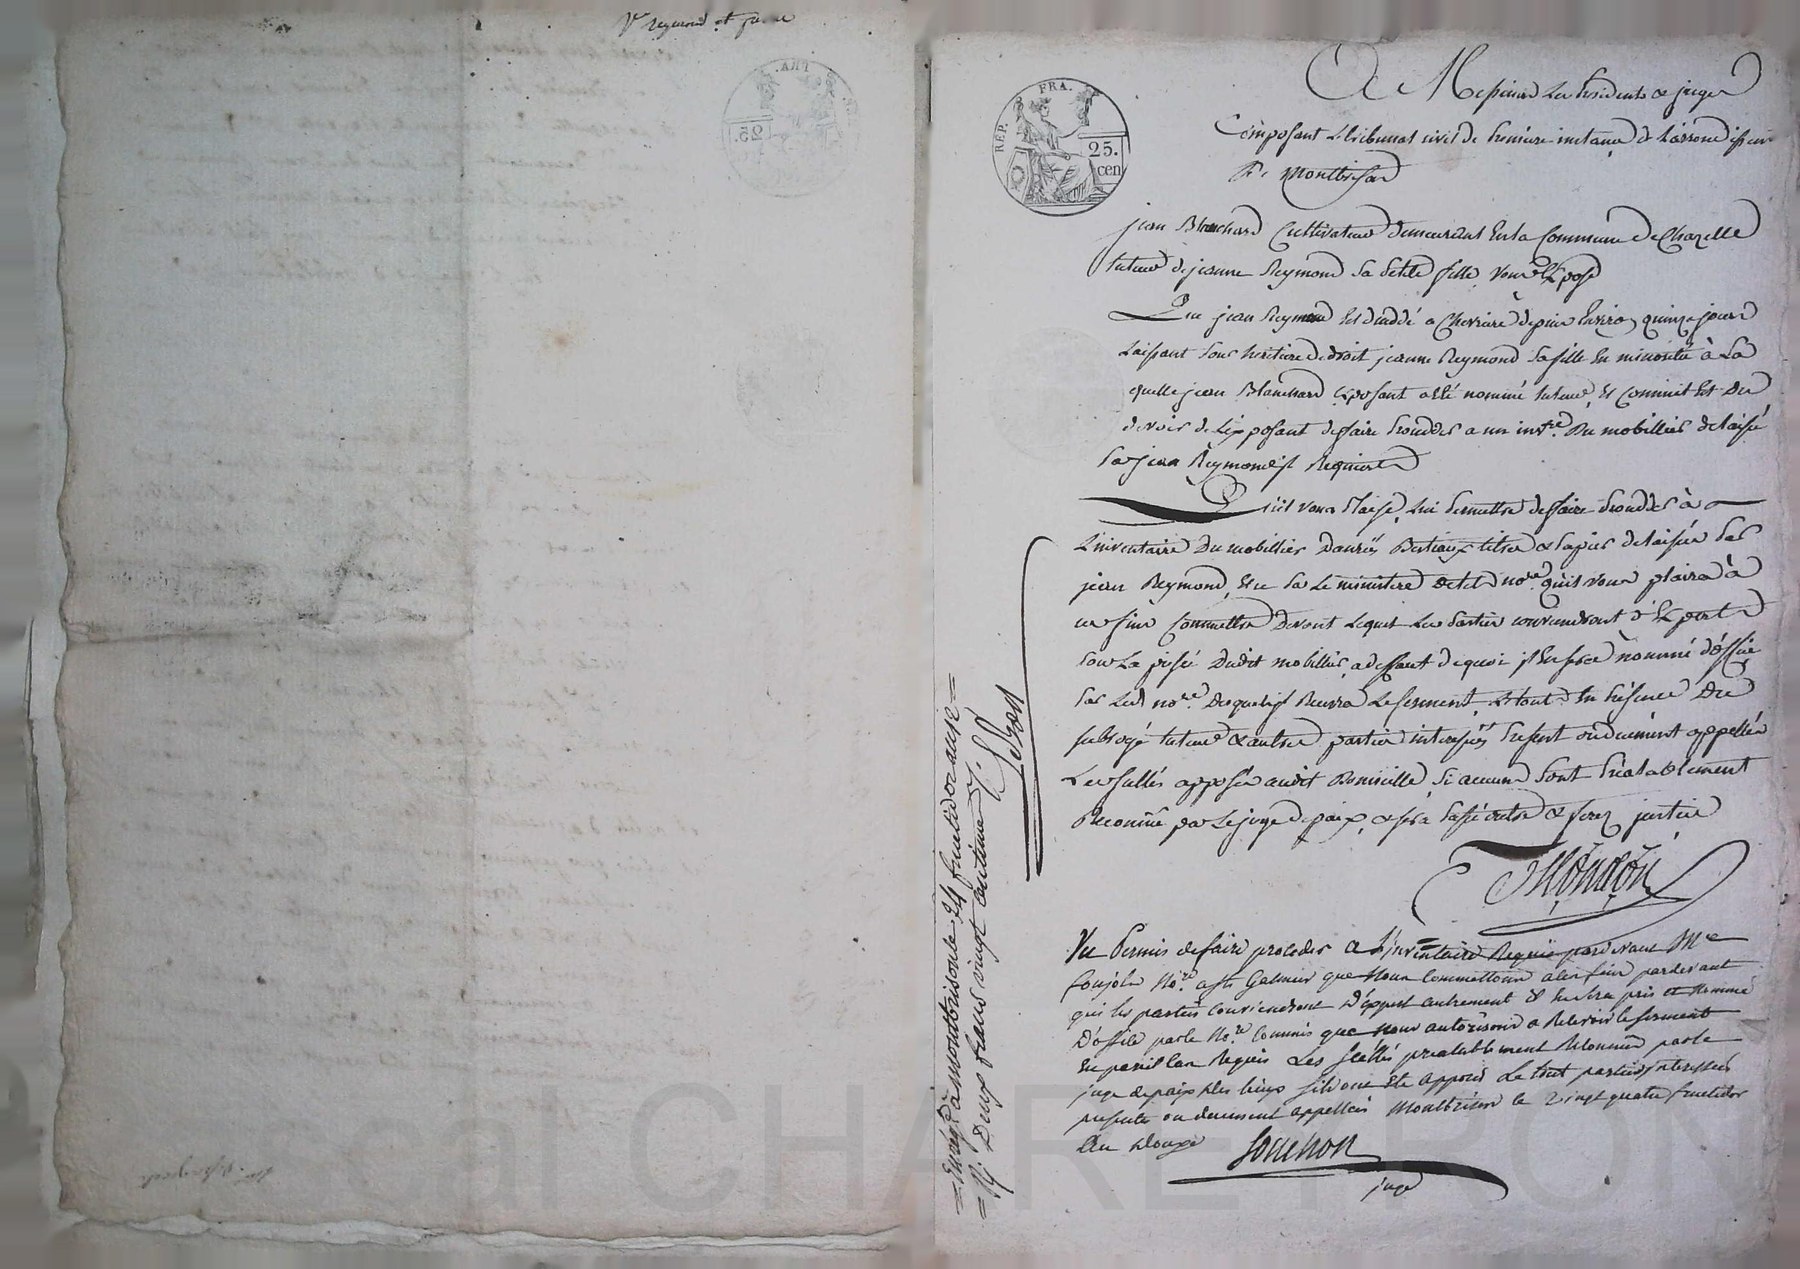 Ve reymond et
REP. FRA.
25.
cen
A Messieurs Les Présidents & juges
Composant Le tribunal civil de premiere instance de L'arrond issem
De Montbrison
jean Blanchard Cultivateur demeurant En la Commune de Chazelle
tuteur de jeanne Reymond Sa petite fille, vous Expose
Que jean Reymond Est decédé a Chevriere depuis Environ quinze jours
Laissant pour heritiere de droit jeanne Reymond Sa fille En minorité à La
quelle jean Blanchard Exposant a été nommé tuteur, Et Comme il Est Du
devoir de L'exposant de faire proceder a un invre. Du mobillier delaissé
par jean Reymond il Requiert
Qu'il vous Plaise, Lui permettre de faire proceder à
L'inventaire Du mobillier Danrées Bestiaux titres & papiers delaissés par
jean Reymond, Et ce par Le ministere de tel nore. qu'il vous plaira à
ces fins Commettre Devant Lequel Les parties conviendront d'Experts
pour La prisée Dudit mobillier, a deffaut de quoi il En sera nommé d'office
par Led. nore. Duquel il Recevra Le serment, Le tout En présence Du
subrogé tuteur & autres parties interessées présents ou duement appellés
Les scellés apposés audit Domicille, si aucuns sont préalablement
Reconnus par Le juge de paix, & sera passé outre & ferez justice
Mondon
Vu Permis de faire proceder a L'inventaire Requis pardevant Me
Nore. a St Galmier que Nous Commettons a ces fins pardevant
qui les parties Conviendront D'Expert autrement il En sera pris et Nommé
D'office par le Nore. Commis que Nous autorisons a Recevoir le serment
En pareil Cas Requis Les Scellés prealablement Reconnus par le
juge de paix des lieux si ils ont Eté apposés Le tout parties interessées
presentes ou duement appellées Montbrison le Vingt quatre fructidor
an Douze
Souchon
juge
= Enrégé. à montbrison le 24 fructidor an 12 =
= R. Deux francs vingt centimes